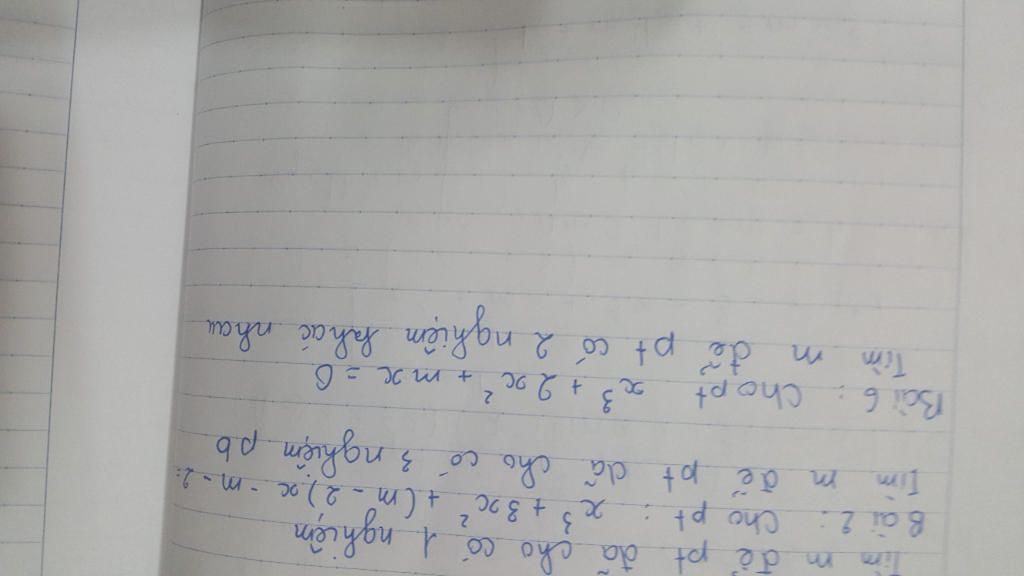 Tìm m để pt đã cho có 1 nghiệm
Bài 2: Cho pt: x³ + 3x² + (m - 2)x - m - 2 =
Tìm m để pt đã cho có 3 nghiệm pb
Bài 6: Cho pt x³ + 2x² + mx = 0
Tìm m để pt có 2 nghiệm khác nhau